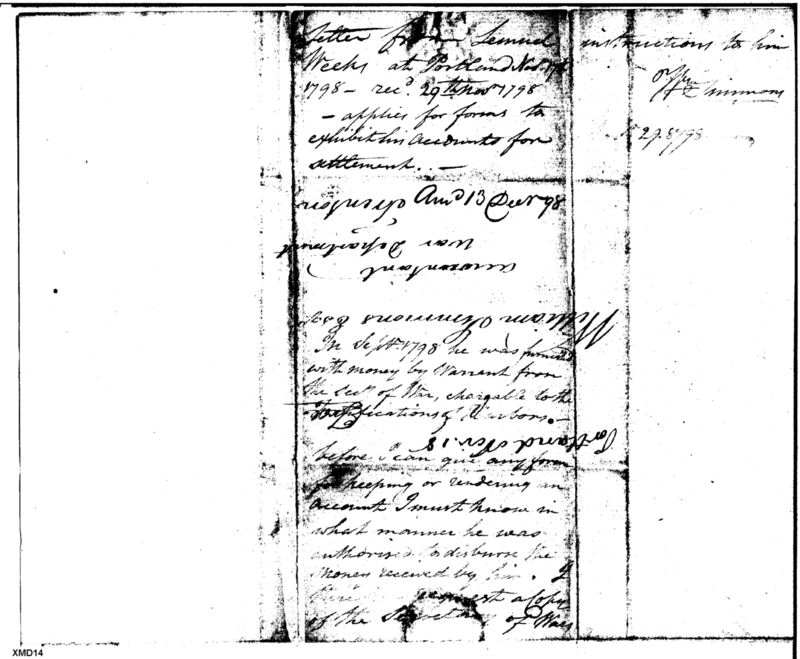 letter from Lemuel
Weeks at Portland Nov 17th
1798 – recd. 29th Nov 1798
– applies for forms to
exhibit his accounts for
settlement. . –
Ansd 13 Decr 98
Trenton
War Department
accountant
William Simmons Esqr
In Septr 1798 he was furnished
with money by Warrant from
the Secy of War, chargable to the
Fortifications of Harbors. –
Portland Nov. 18
before I can give any form
for keeping or rendering an
account I must know in
what manner he was
authorised to disburse the
Money received by him. I
request a Copy
of the Secretary of Wars
instructions to him
Wm Simmons
29. 8 98
XMD14